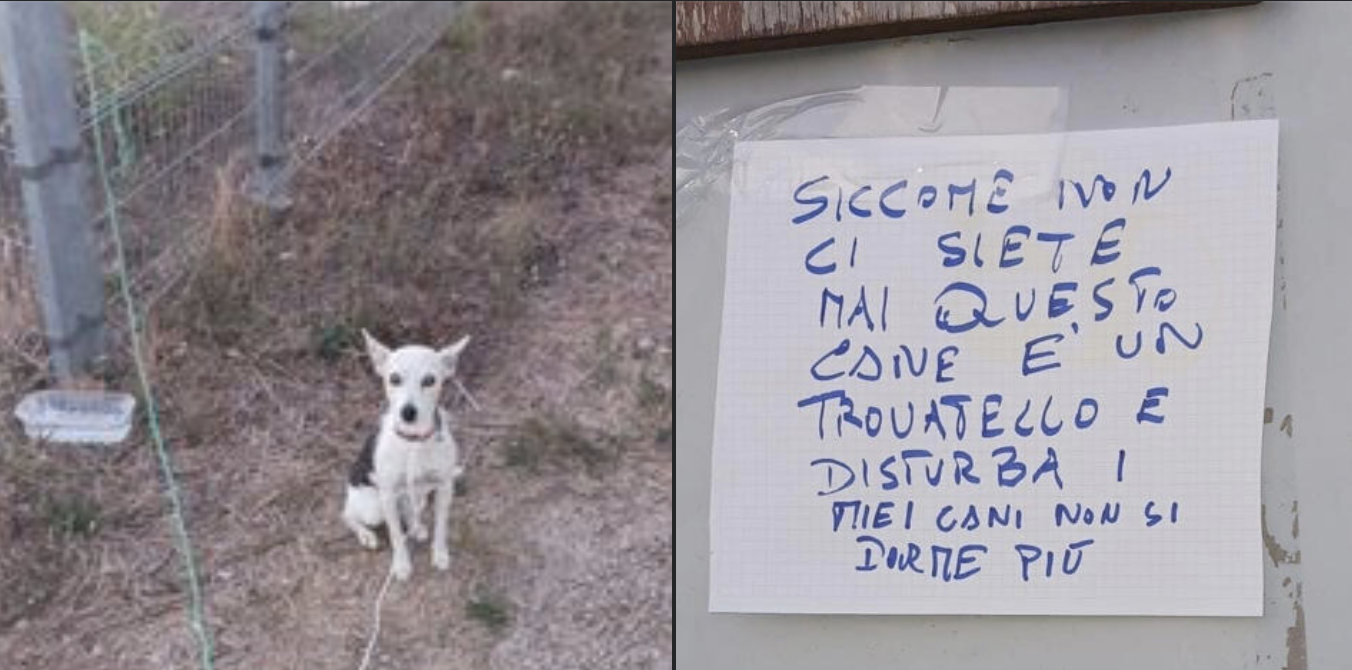 SICCOME NON
CI SIETE
MAI QUESTO
CANE E' UN
TROVATELLO E
DISTURBA I
MIEI CANI NON SI
DORME PIÙ